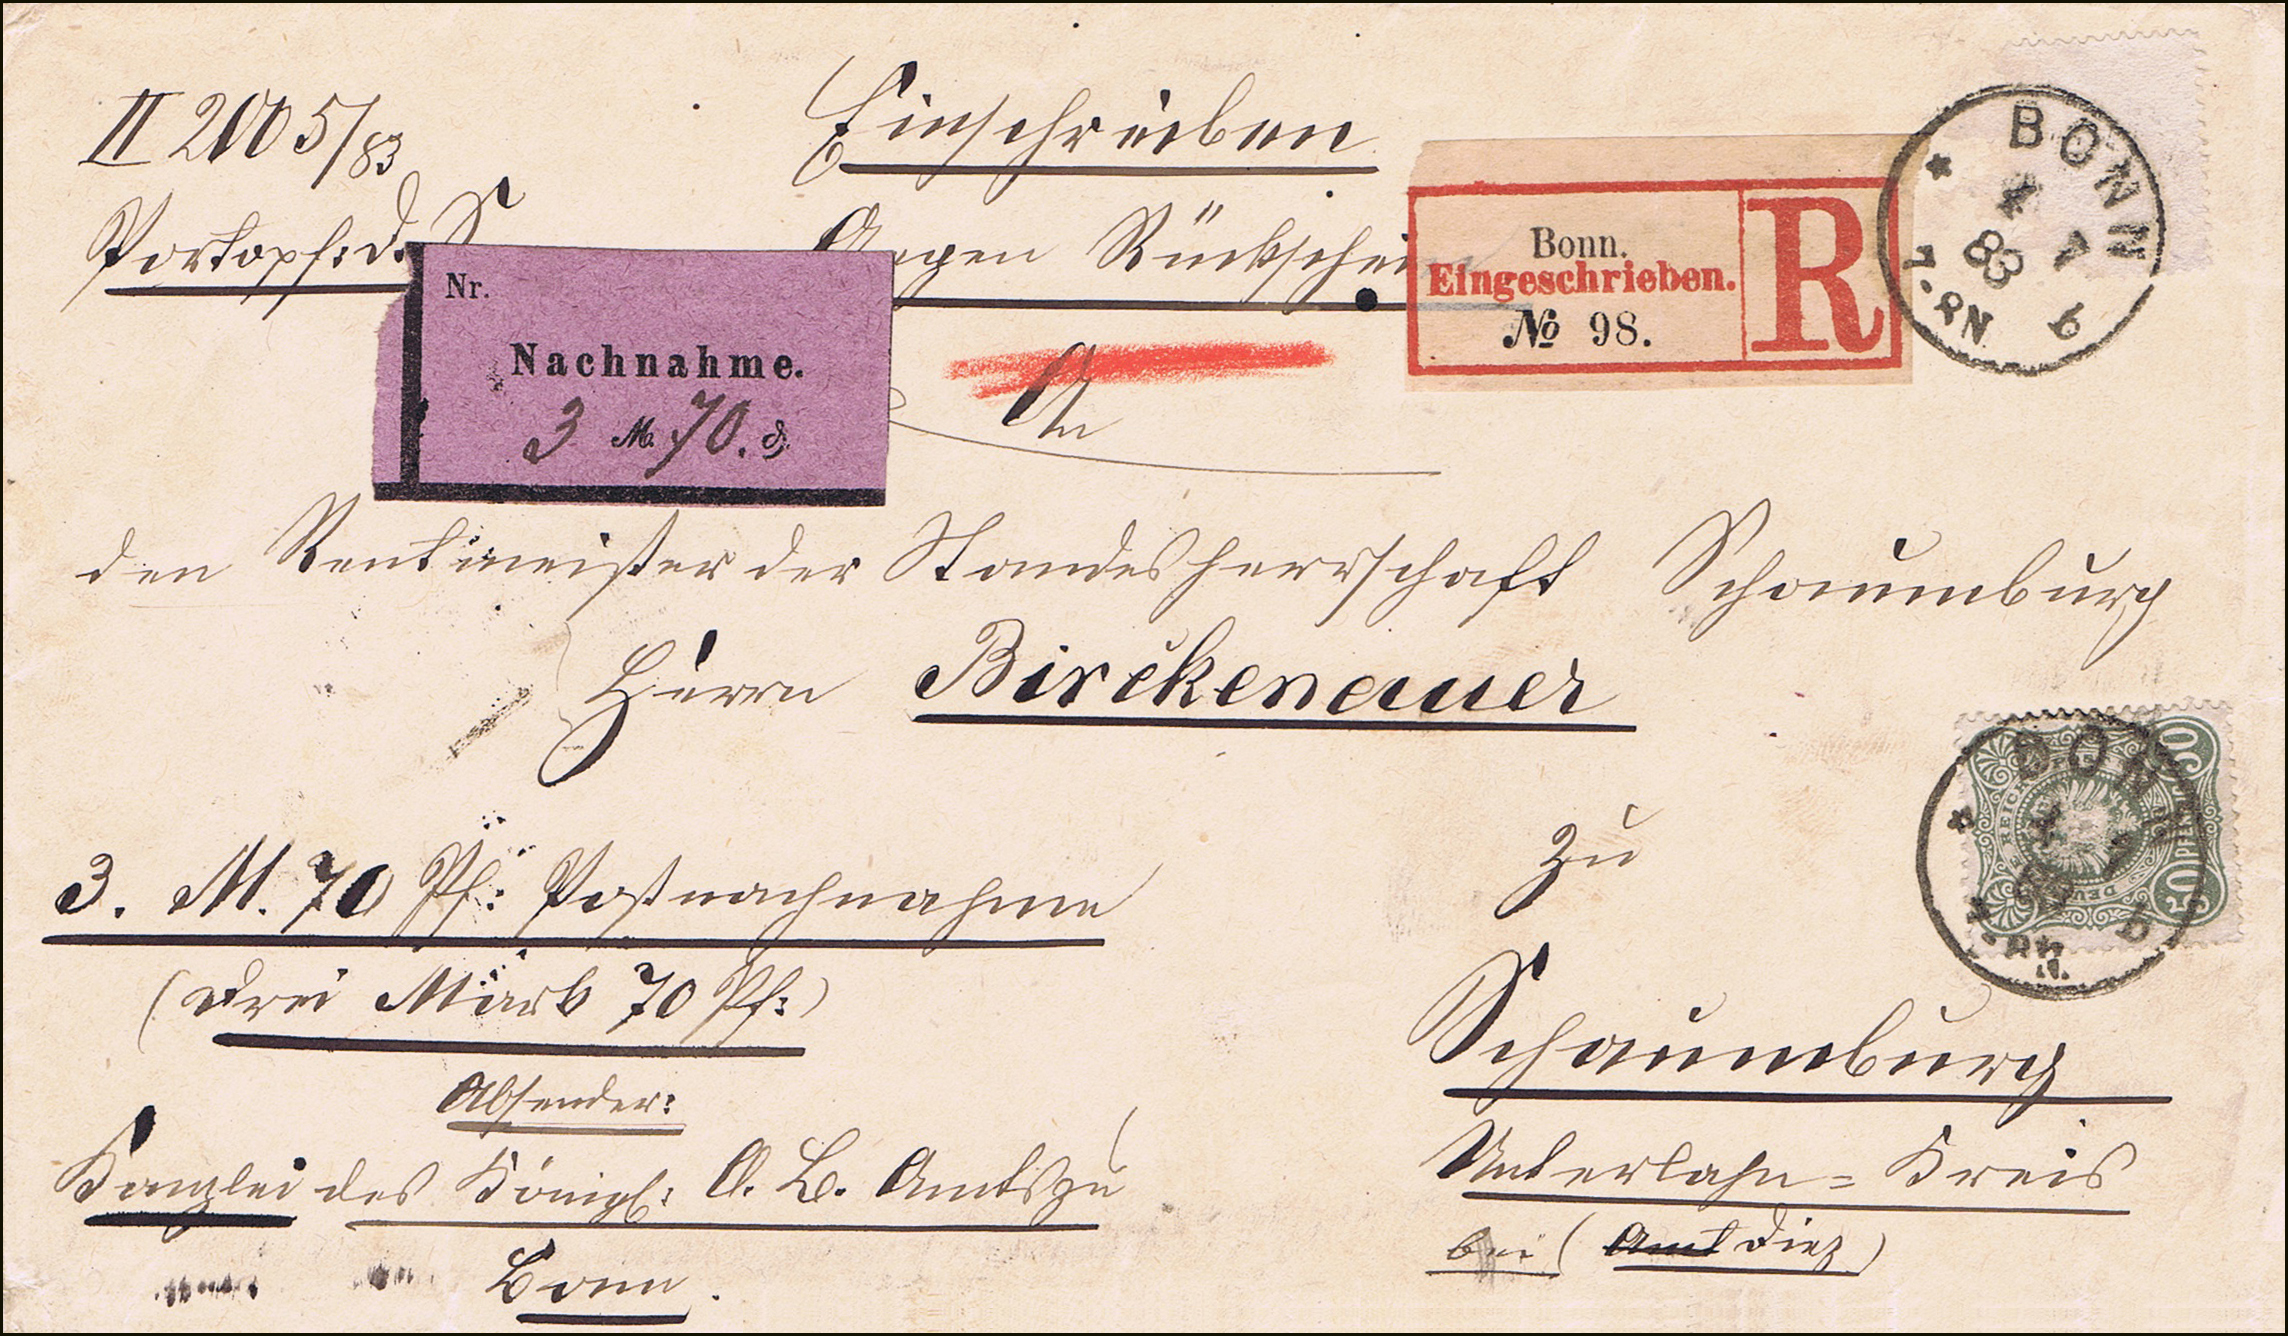 II 2005/83
Einschreiben
Portopfl. d. S.
Gegen Rückschein
Bonn.
Eingeschrieben.
No 98.
R
BONN
4 7
83
7-8N
b
Nr.
Nachnahme.
3 M. 70. ₰
An
den Rentmeister der Standesherrschaft Schaumburg
Herrn Birckenauer
BONN
50 PFENNIG 50
DEUTSCHE REICHS-POST
zu
3. M. 70 Pf: Postnachnahme
(Drei Mark 70 Pf:)
Schaumburg
Absender:
Unterlahn=Kreis
Kanzlei des Königl: O. B. Amts zu
bei (Amt Diez)
Bonn.